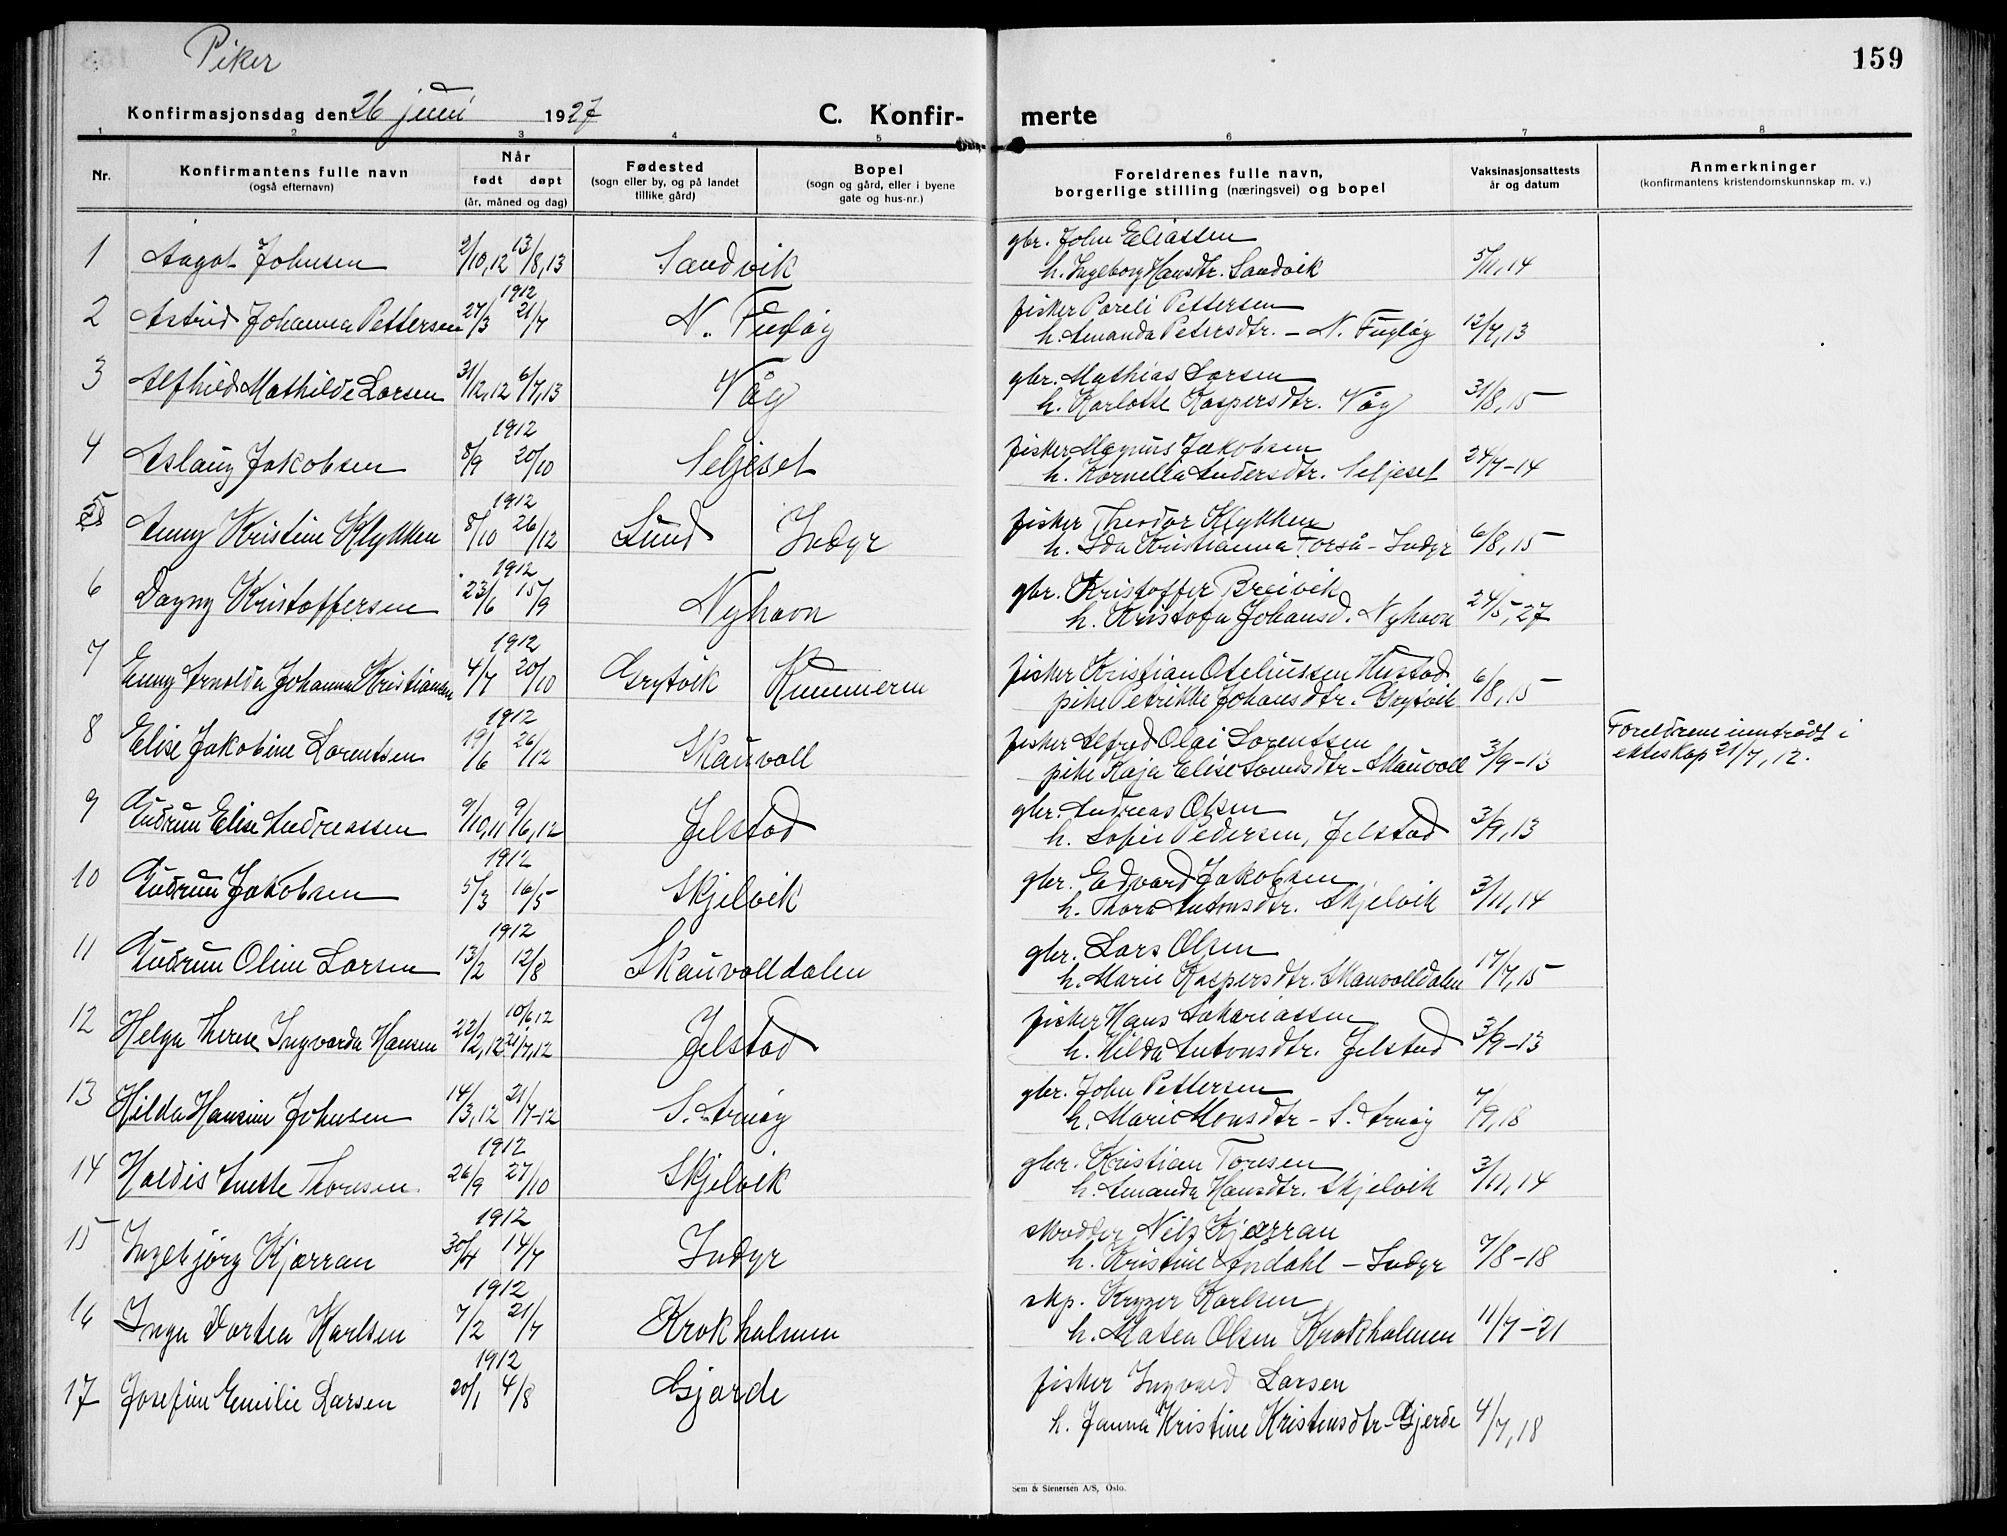 Piker
159
Konfirmasjonsdag den 26 juni 1927
C. Konfir-
merte
1 2 3 4 5 6 7 8
Nr.
Konfirmantens fulle navn
(også efternavn)
Når
født døpt
(år, måned og dag)
Fødested
(sogn eller by, og på landet
tillike gård)
Bopel
(sogn og gård, eller i byene
gate og hus-nr.)
Foreldrenes fulle navn,
borgerlige stilling (næringsvei) og bopel
Vaksinasjonsattests
år og datum
Anmerkninger
(konfirmantens kristendomskunnskap m. v.)
gbr. John Eliassen
1 Aagot Johnsen 2/10,12 13/8,13 Sandvik h. Ingeborg Hansdtr. Sandvik 5/11,14
1912
fisker Pareli Pettersen
2 Astrid Johanna Pettersen 27/3 21/7 N. Fugløy h. Amanda Petersdtr. – N. Fugløy 12/7,13
gbr. Mathias Larsen
3 Alfhild Mathilde Larsen 31/12,12 6/7,13 Våg h. Karlotte Kaspersdtr. Våg 31/8,15
1912
fisker Magnus Jakobsen
4 Aslaug Jakobsen 8/9 20/10 Seljeset h. Kornelia Andersdtr. Seljeset 24/7-14
1912
fisker Theodor Klykken
5 Anny Kristine Klykken 8/10 26/12 Lund Indyr h. Ida Kristianna Forså – Indyr 6/8,15
1912
gbr. Kristoffer Breivik
6 Dagny Kristoffersen 23/6 15/9 Nyhavn h. Kristofa Johansd. Nyhavn 24/5,27
1912
fisker Kristian Oteliussen Hustad
7 Enny Arnolda Johanna Kristiansen 4/7 20/10 Grytvik pike Petrikke Johansdtr. Grytvik 6/8,15
1912
fisker Alfred Olai Lorentsen
Foreldrene inntrådt i
8 Elise Jakobine Lorentsen 19/6 26/12 Skauvoll pike Kaja Elise – Skauvoll 3/9-13 ekteskap 21/7,12.
gbr. Andreas Olsen
9 Gudrun Elise Andreassen 9/10,11 9/6,12 Jelstad h. Sofie Pedersen, Jelstad 3/9,13
1912
gbr. Edvard Jakobsen
10 Gudrun Jakobsen 5/3 16/5 Skjelvik h. Thora Antonsdtr. Skjelvik 3/11,14
1912
gbr. Lars Olsen
11 Gudrun Oline Larsen 13/2 12/8 Skauvolldalen h. Marie Kaspersdtr. Skauvolldalen 17/7,15
10/6,12
fisker Hans Sakariassen
12 Helga Therese Ingvarda Hansen 22/2,12 21/7,12 Jelstad h. Hilda Antonsdtr. Jelstad 3/9-13
gbr. John Pettersen
13 Hilda Hansine Johnsen 14/3,12 21/7-12 S. Arnøy h. Marie Monsdtr – S. Arnøy 7/9,18
1912
gbr. Kristian Toresen
14 Haldis Anette Thoresen 26/9 27/10 Skjelvik h. Amanda Hansdtr. Skjelvik 3/11,14
1912
skredder Nils Kjærran
15 Ingebjørg Kjærran 30/4 14/7 Indyr h. Kristine Andahl – Indyr 7/8-18
1912
skp. Karlsen
16 Inga Dortea Karlsen 7/2 21/7 Krokholmen h. Matea Olsen Krokholmen 11/7-21
1912
fisker Ingvald Larsen
17 Josefine Emilie Larsen 20/1 4/8 Gjerde h. Janna Kristine Kristensdtr – Gjerde 4/7,18
Sem & Stenersen A/S, Oslo.